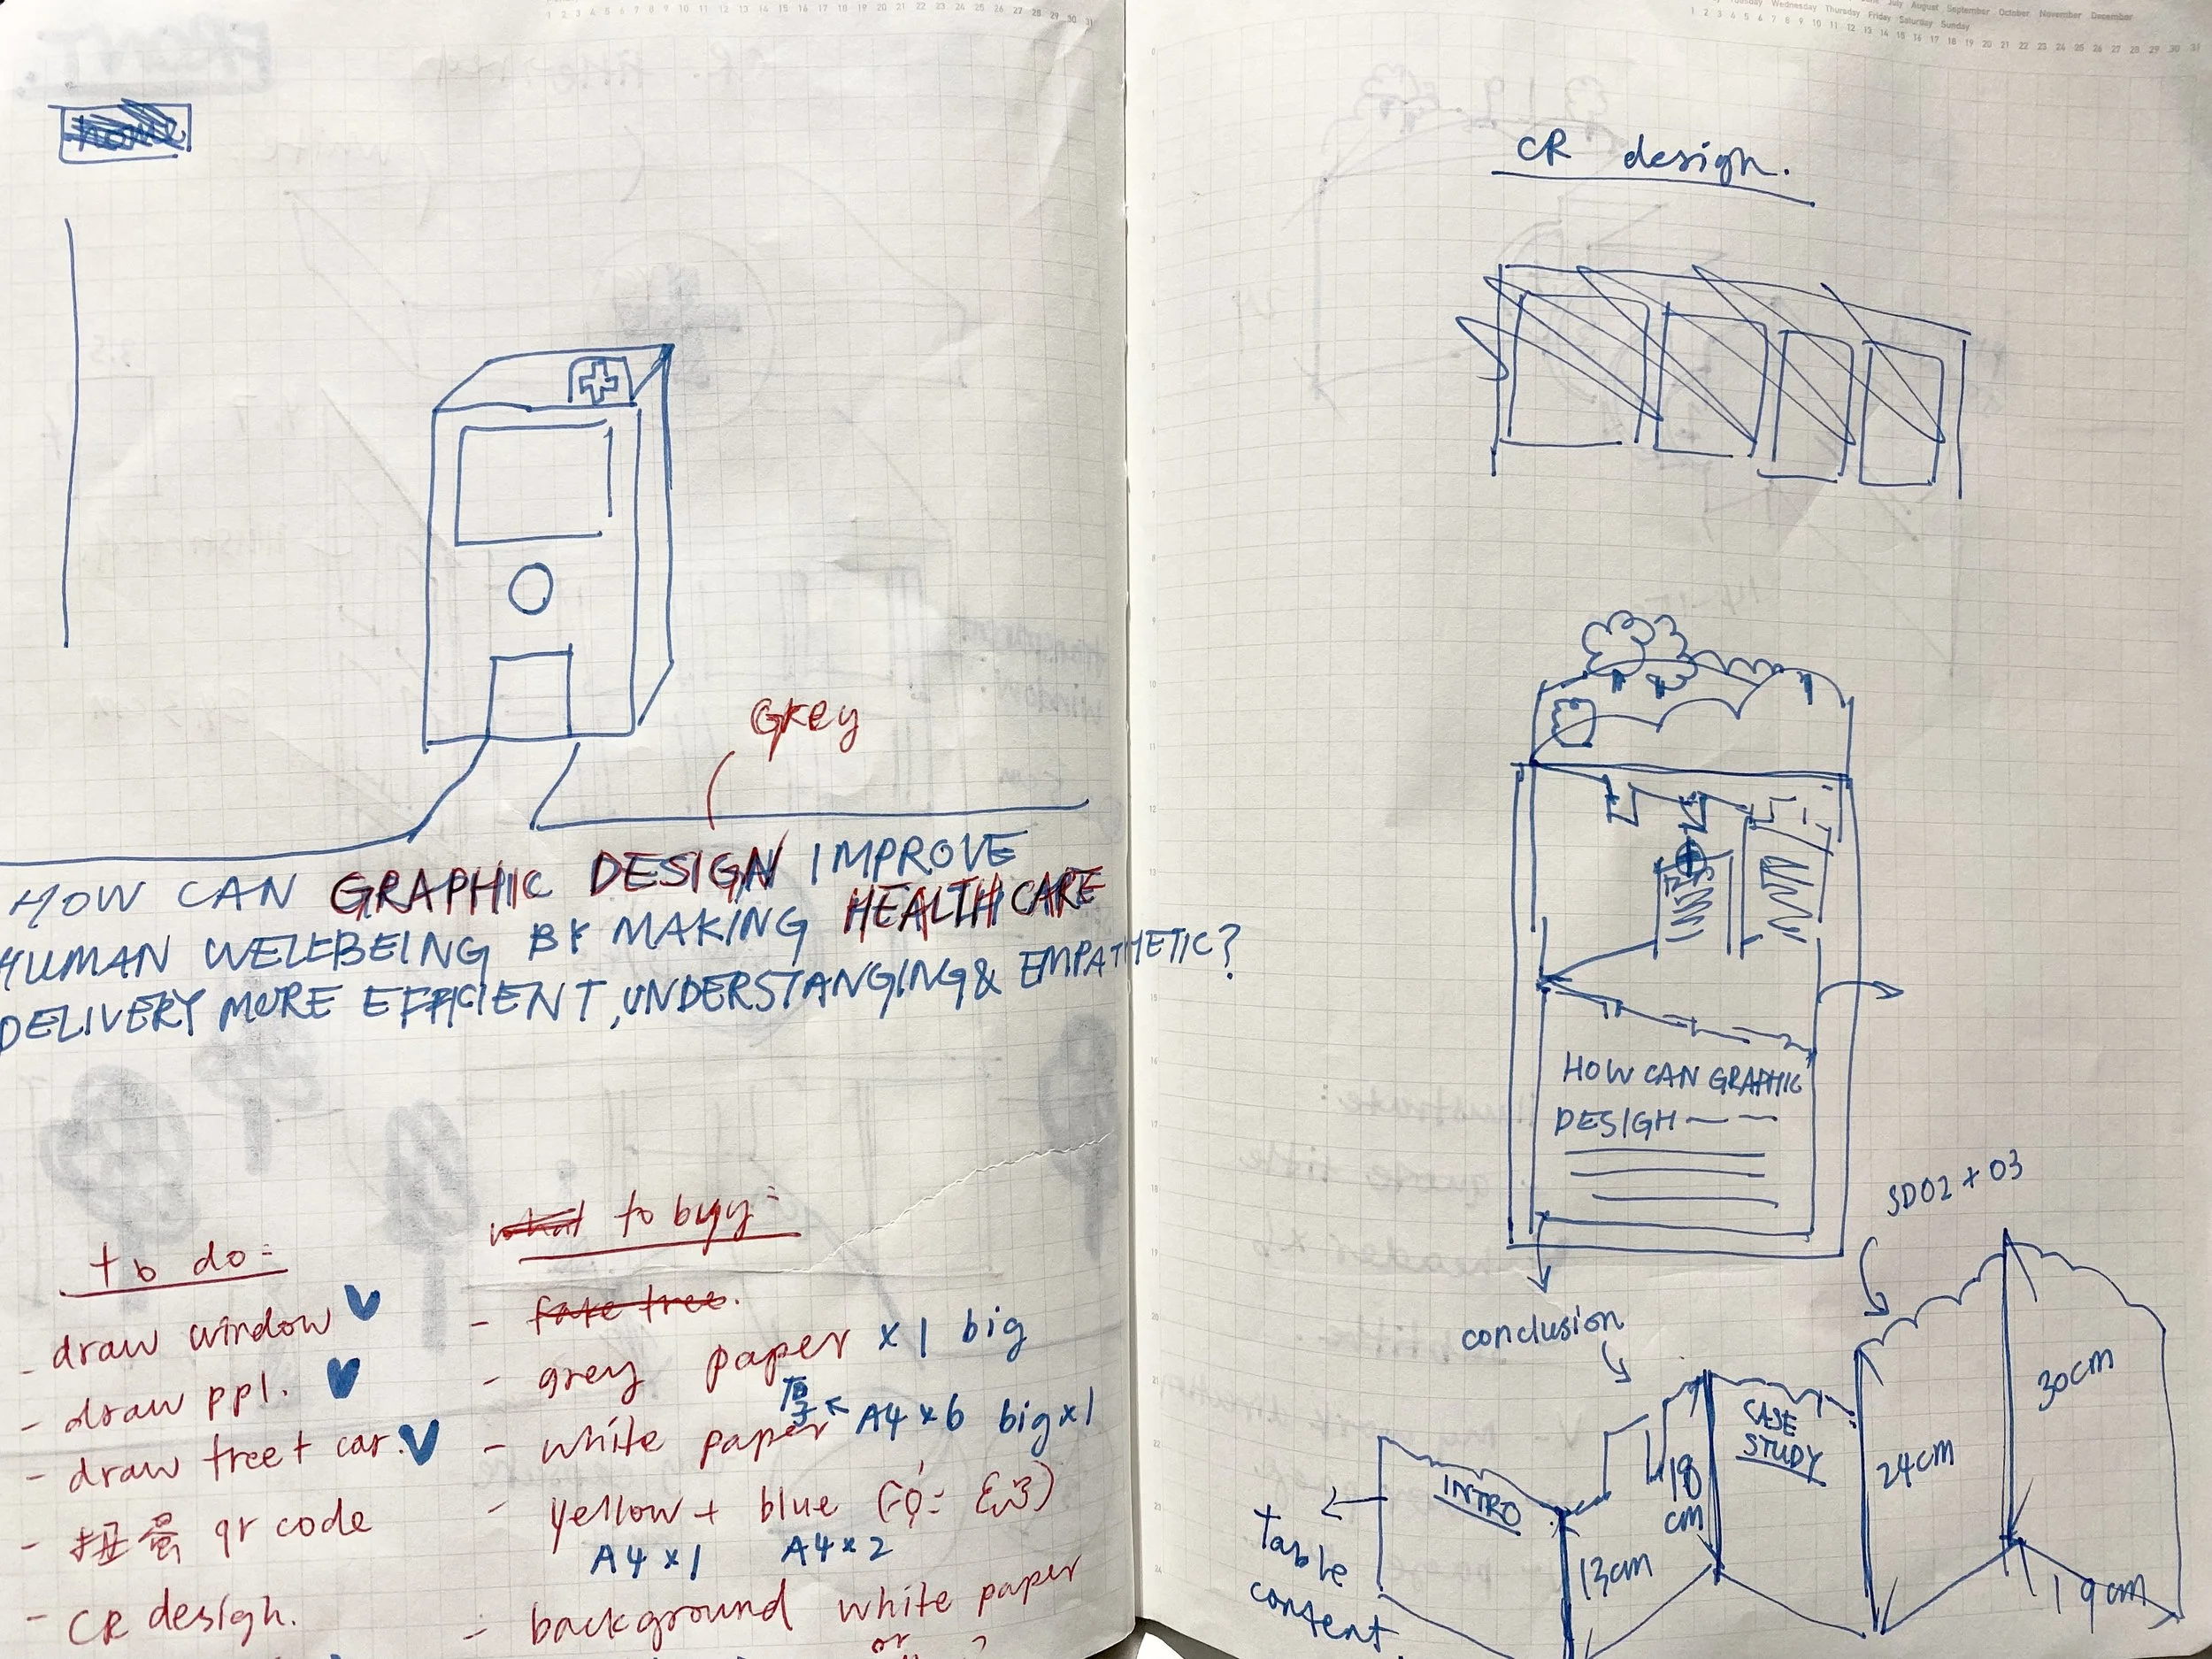 home
GREY
HOW CAN GRAPHIC DESIGN IMPROVE
HUMAN WELLBEING BY MAKING HEALTH CARE
DELIVERY MORE EFFICIENT, UNDERSTANGING & EMPATHETIC?
to do:
- draw window
- draw ppl.
- draw tree + car.
- 扭蛋 qr code
- CR design.
what to buy:
- fake tree.
- grey paper x 1 big
厚
- white paper A4 x 6 big x 1
- yellow + blue
A4 x 1 A4 x 2
- background white paper
or
CR design.
HOW CAN GRAPHIC
DESIGH
SD02 + 03
conclusion
30cm
CASE
STUDY
18
cm
24cm
INTRO
13cm
19cm
Table
content